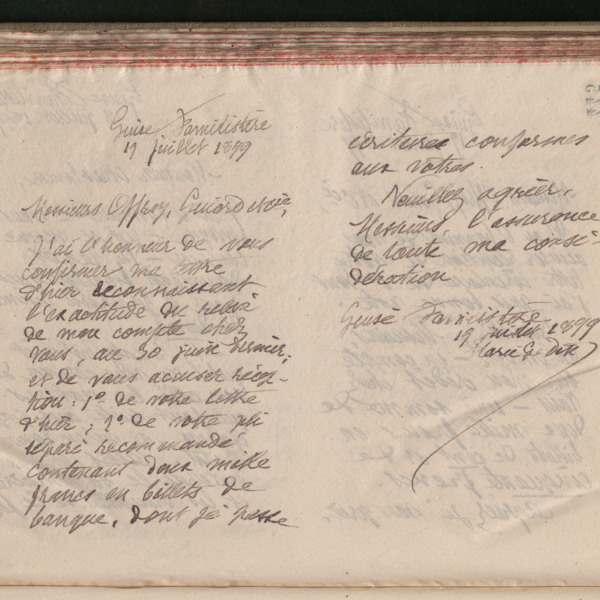 Guise Familistère
19 juillet 1899
Messieurs Offroy, Guiard et Cie,
J'ai l'honneur de vous
confirmer ma lettre
d'hier reconnaissant
l'exactitude du relevé
de mon compte chez
vous, au 30 juin dernier,
et de vous accuser récep-
tion: 1º de votre lettre
d'hier; 2º de votre pli
séparé recommandé
contenant deux mille
francs en billets de
banque, dont j'ai passé
écritures conformes
aux vôtres.
Veuillez agréer,
Messieurs, l'assurance
de toute ma consi-
dération
Guise Familistère
19 juillet 1899
Marie
445